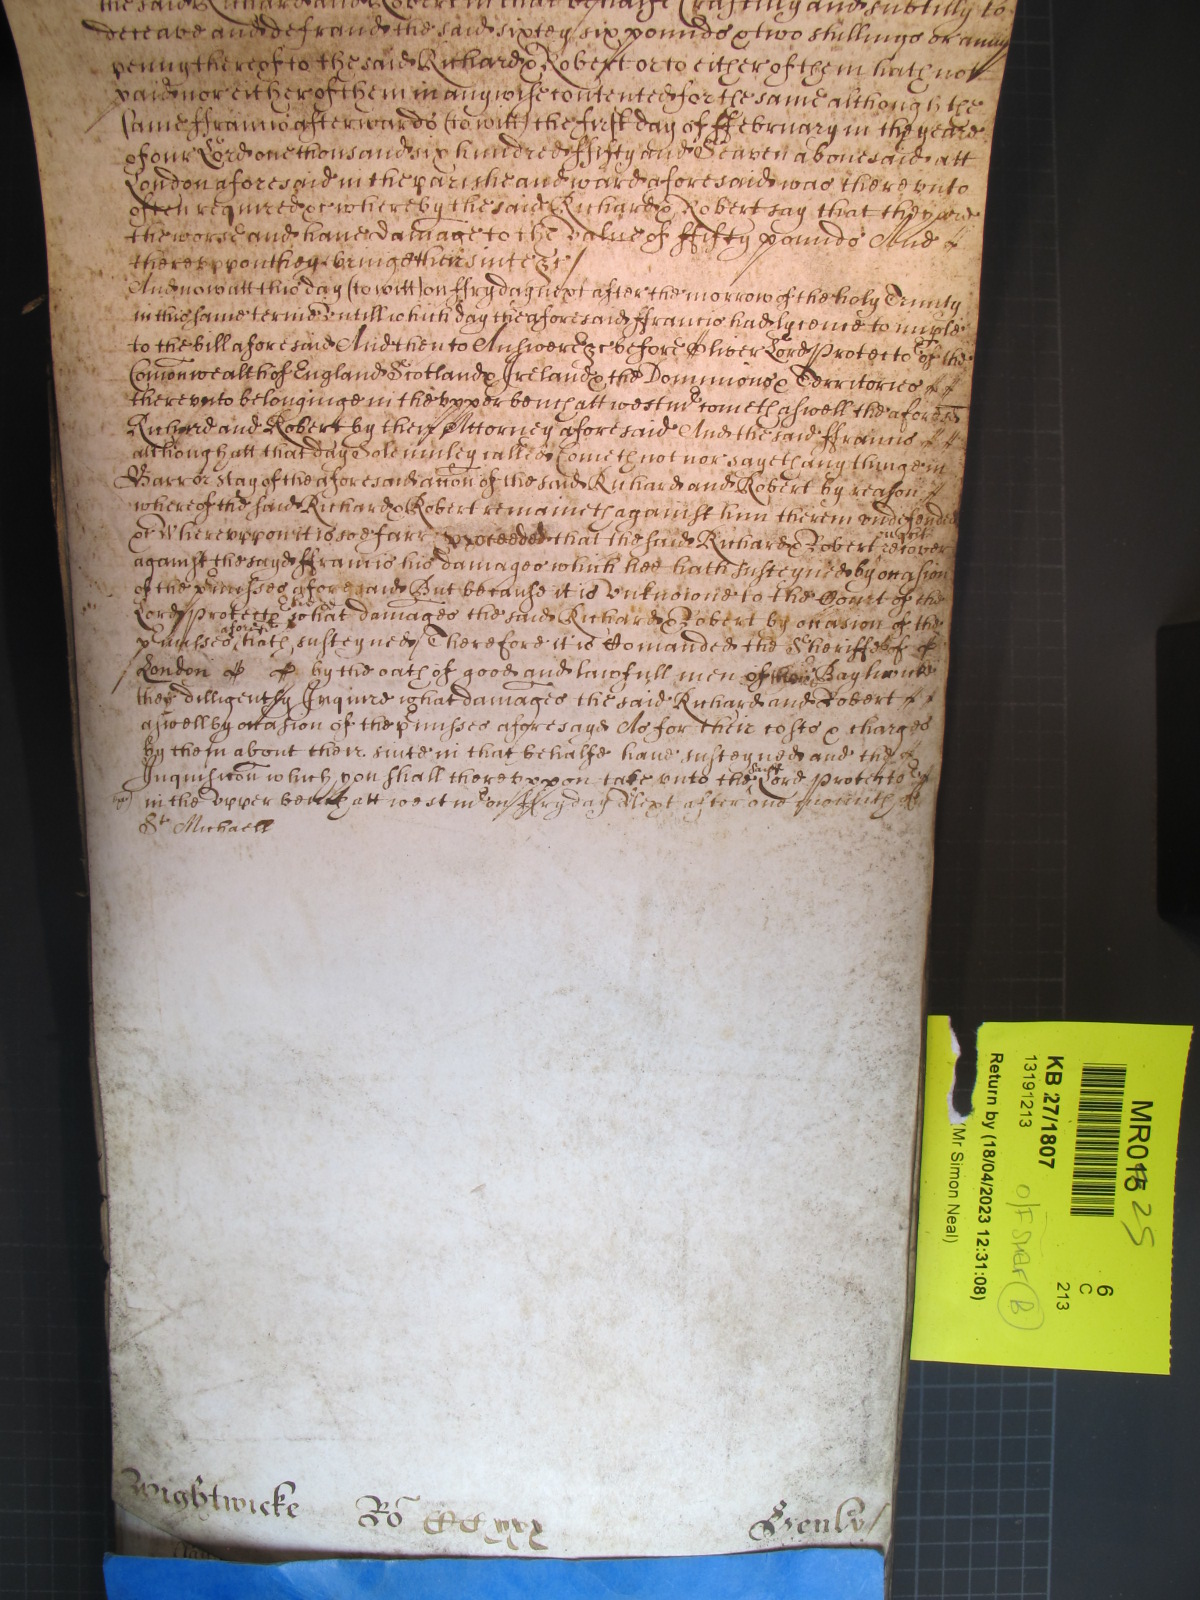 the said Richard and Robert in that behalfe Craftily and subtilly to
deceave and defraud the said sixtey six pounds & two shillings or any
penny thereof to the said Richard & Robert or to either of them hath not
paid nor either of them in any wise contented for the same although the
same ffrancis afterwards (to witt) the first day of ffebruary in the yeare
of our Lord one thousand six hundred ffifty and Seaven abovesaid att
London aforesaid in the parishe and ward aforesaid was there vnto
often required &c whereby the said Richard & Robert say that they are
the worse and have damage to the value of ffifty pounds And
therevppon they bringe their suite &c
And now att this day (to witt) on ffryday next after the morrow of the holy Trinity
in this same terme Vntill which day the aforesaid ffrancis had lycence to imple
to the bill aforesaid And then to Answere &c before Oliver Lord Protector of the
Comonwealth of England Scotland & Ireland & the Dominions & Territories
therevnto belonginge in the vpper bench att westmr cometh aswell the aforesd
Richard and Robert by their Attorney aforesaid And the said ffrancis
although att that day Solemnley called Cometh not nor sayeth any thinge in
Barr or stay of the aforesaid accon of the said Richard and Robert by reason
whereof the said Richard & Robert remaineth against him therein vndefended
&c Wherevppon it is soe farr proceeded that the said Richard & Robert ought recover
against the sayd ffrancis his damages which hee hath susteyned by occasion
of the pmisses aforesaid But because it is vnknowne to the Court of the
Lord Protector what damages the said Richard & Robert by occasion of the
pmisses aforesd hath susteyned Therefore it is Comanded the Sheriffs of
London by the oath of good and lawfull men of their Baylwicke
they dilligently Inquire what damages the said Richard and Robert
aswell by occasion of the pmisses aforesayd As for their costs & charges
by them about their suite in that behalfe have susteyned and the
Inquisicon which you shall therevppon take vnto the said Lord Protector
in the vpper bench att westmr on ffryday Next after one month of
St Michaell
Wightwicke Ro CCxxx Henly
MR018 25
6
C
213
KB 27/1807
13191213
Return by (18/04/2023 12:31:08)
(Mr Simon Neal)